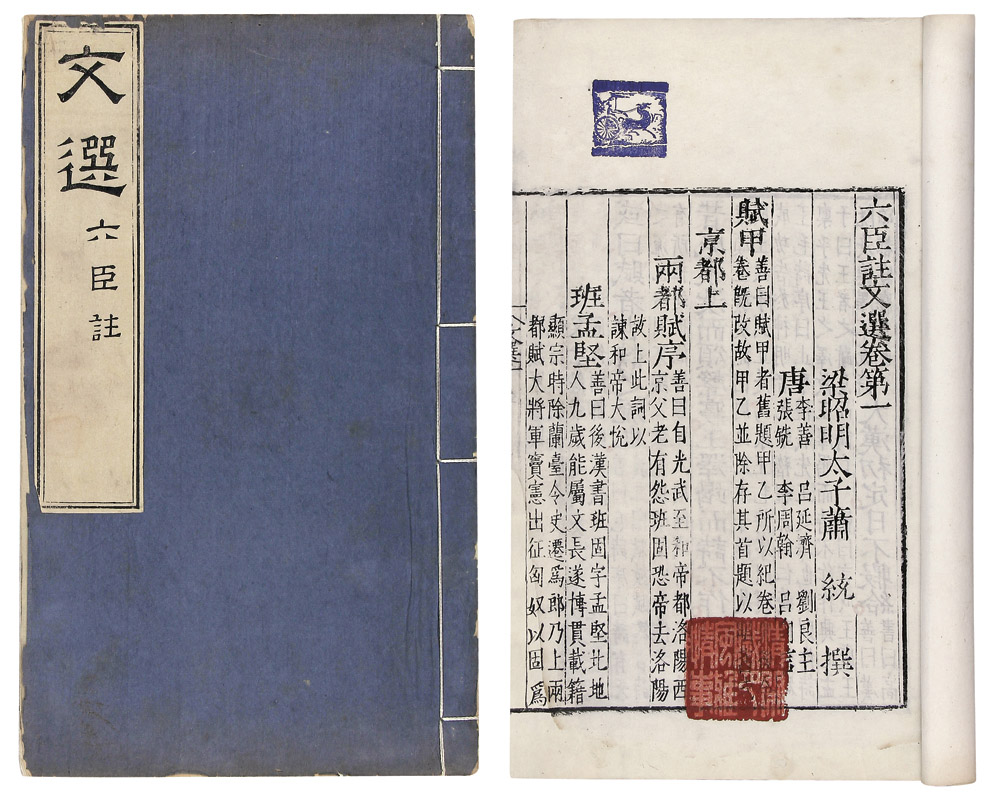 文選
六臣註
六臣註文選卷第一
梁昭明太子蕭 統 撰
唐
李善 呂延濟 劉良
張銑 李周翰 呂
賦甲
善曰賦甲者舊題甲乙所以紀卷
卷旣改故甲乙並除存其首題以
京都上
兩都賦序
善曰自光武至和帝都洛陽西
京父老有怨班固恐帝去洛陽
故上此詞以
諫和帝大悅
班孟堅
善曰後漢書班固字孟堅北地
人九歲能屬文長遂博貫載籍
顯宗時除蘭臺令史遷爲郎乃上兩
都賦大將軍竇憲出征匈奴以固爲